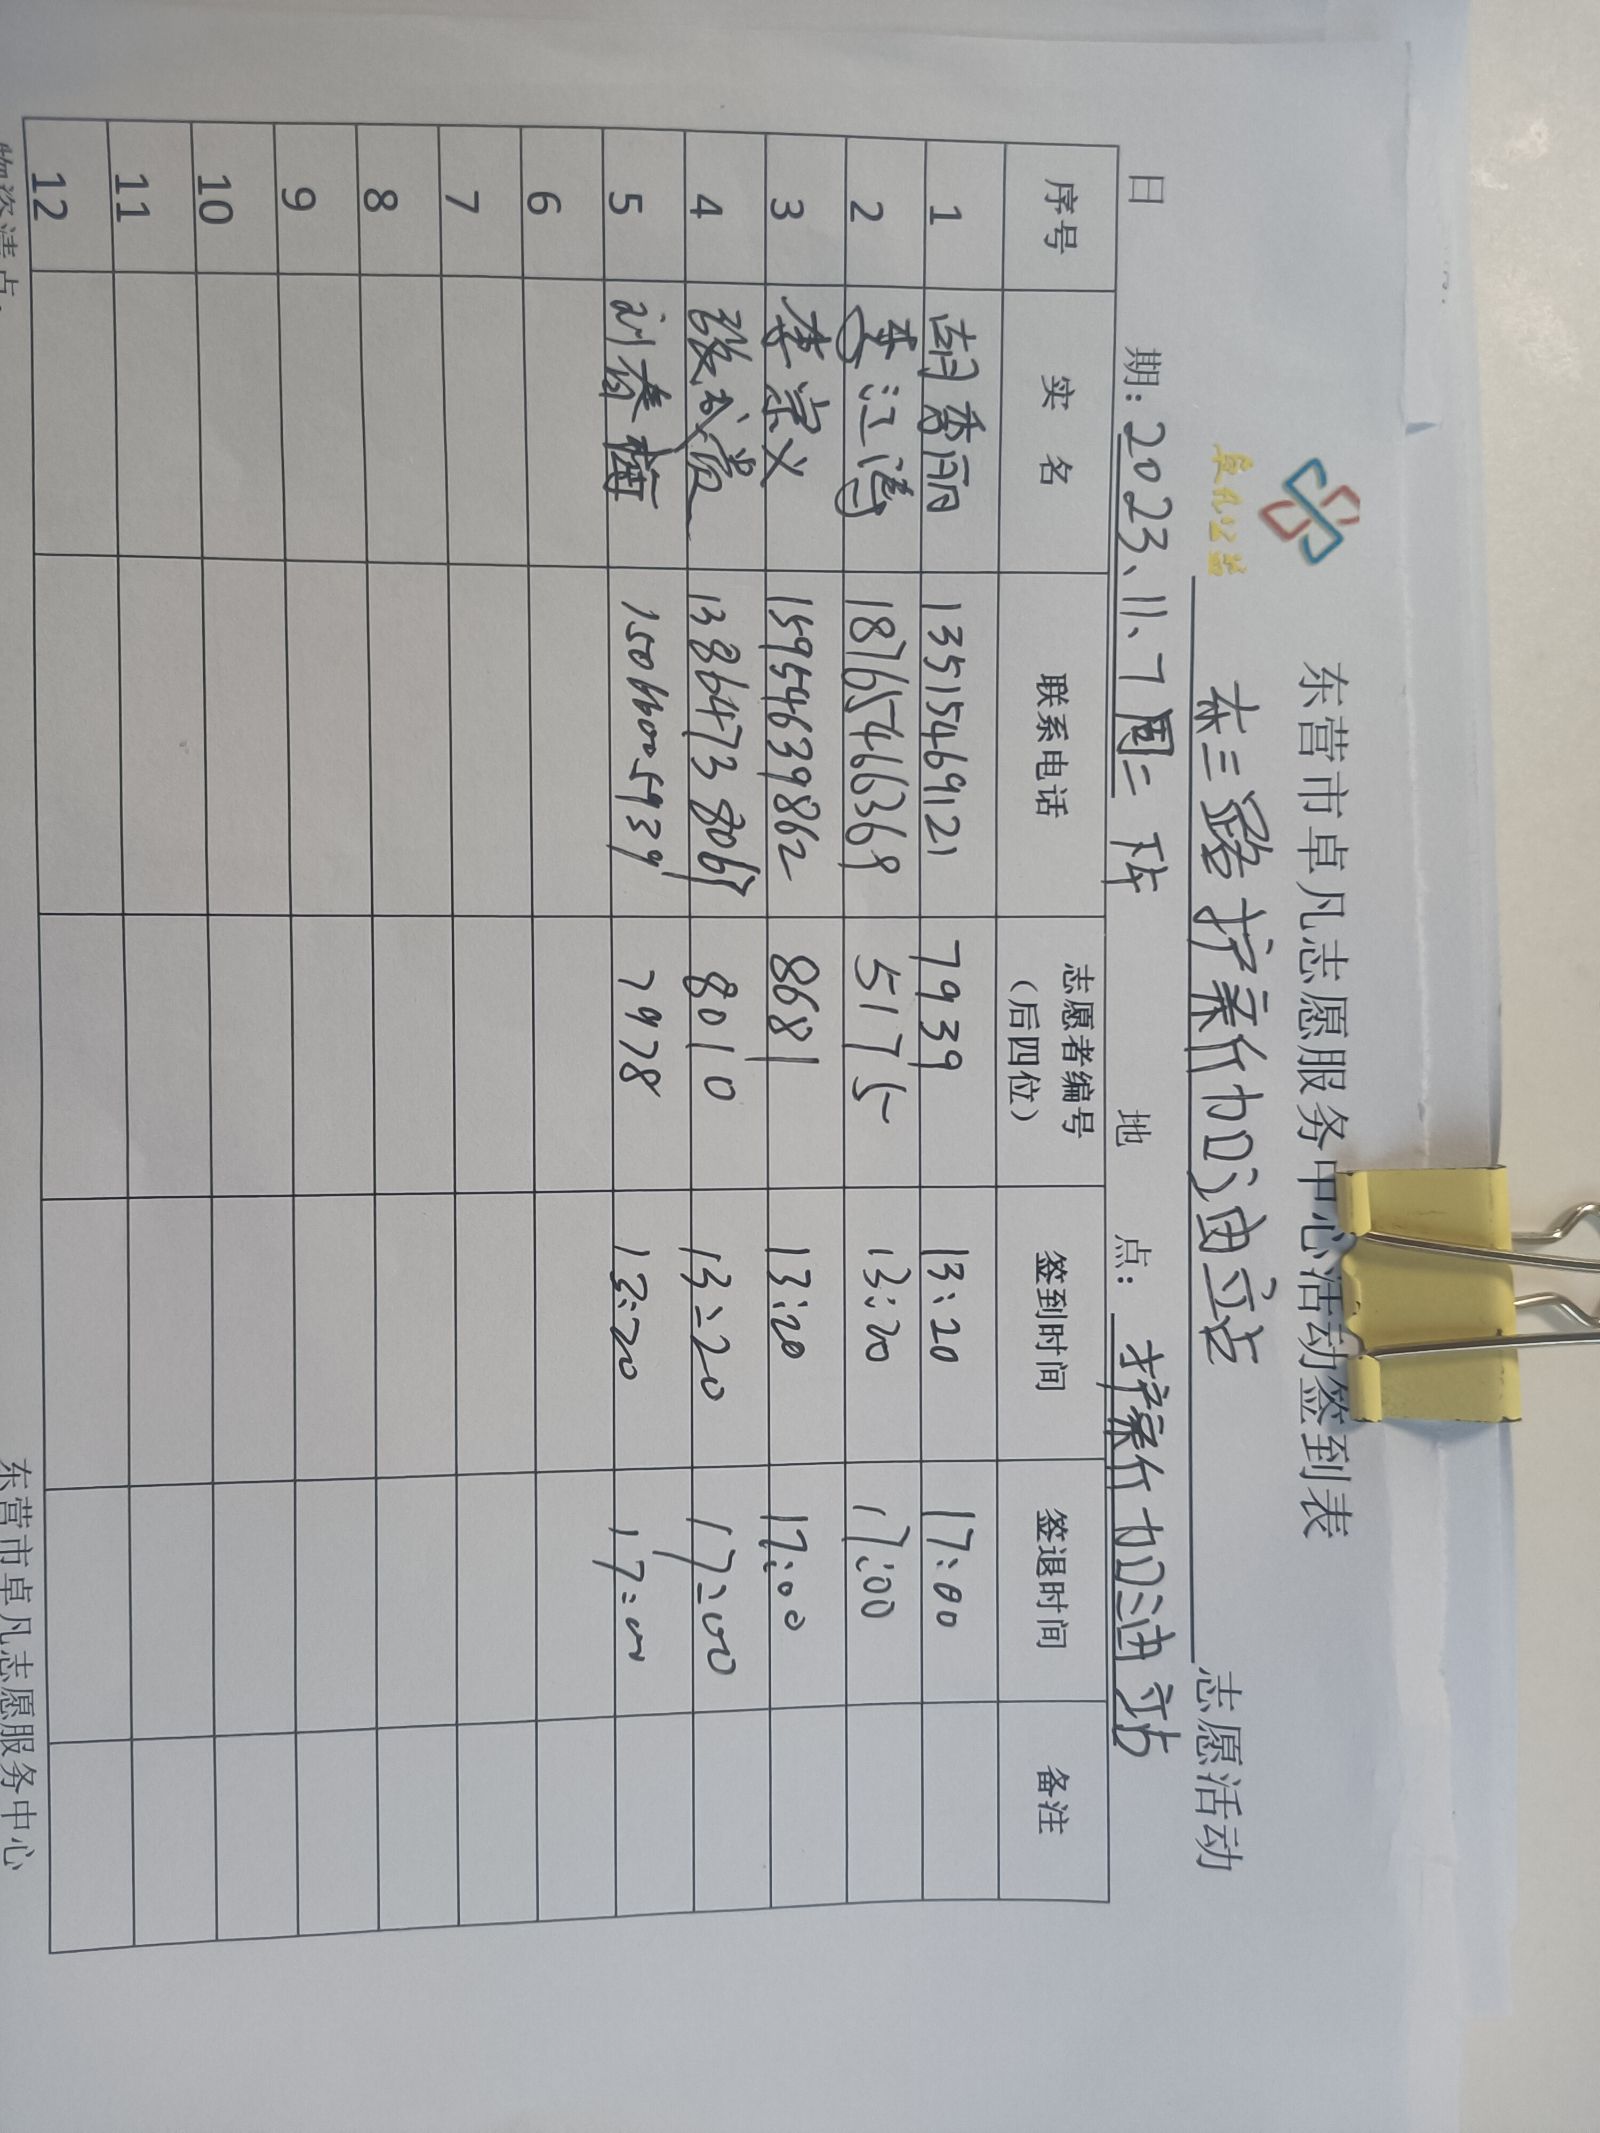 东营市卓凡志愿服务中心活动签到表
卓凡公益
东三路 护案行加油立站 志愿活动
日 期：2023、11、7 周二 下午 地 点：护案行加油站
序号 实 名 联系电话 志愿者编号（后四位） 签到时间 签退时间 备注
1 胡秀丽 13515469121 7939 13:20 17:00
2 李江涛 18765466369 5175 13:20 17:00
3 李宗义 15954639862 8681 13:20 17:00
4 13864738069 8010 13:20 17:00
5 刘春梅 15066005939 7978 13:20 17:00
6
7
8
9
10
11
12
物资清点：
东营市卓凡志愿服务中心